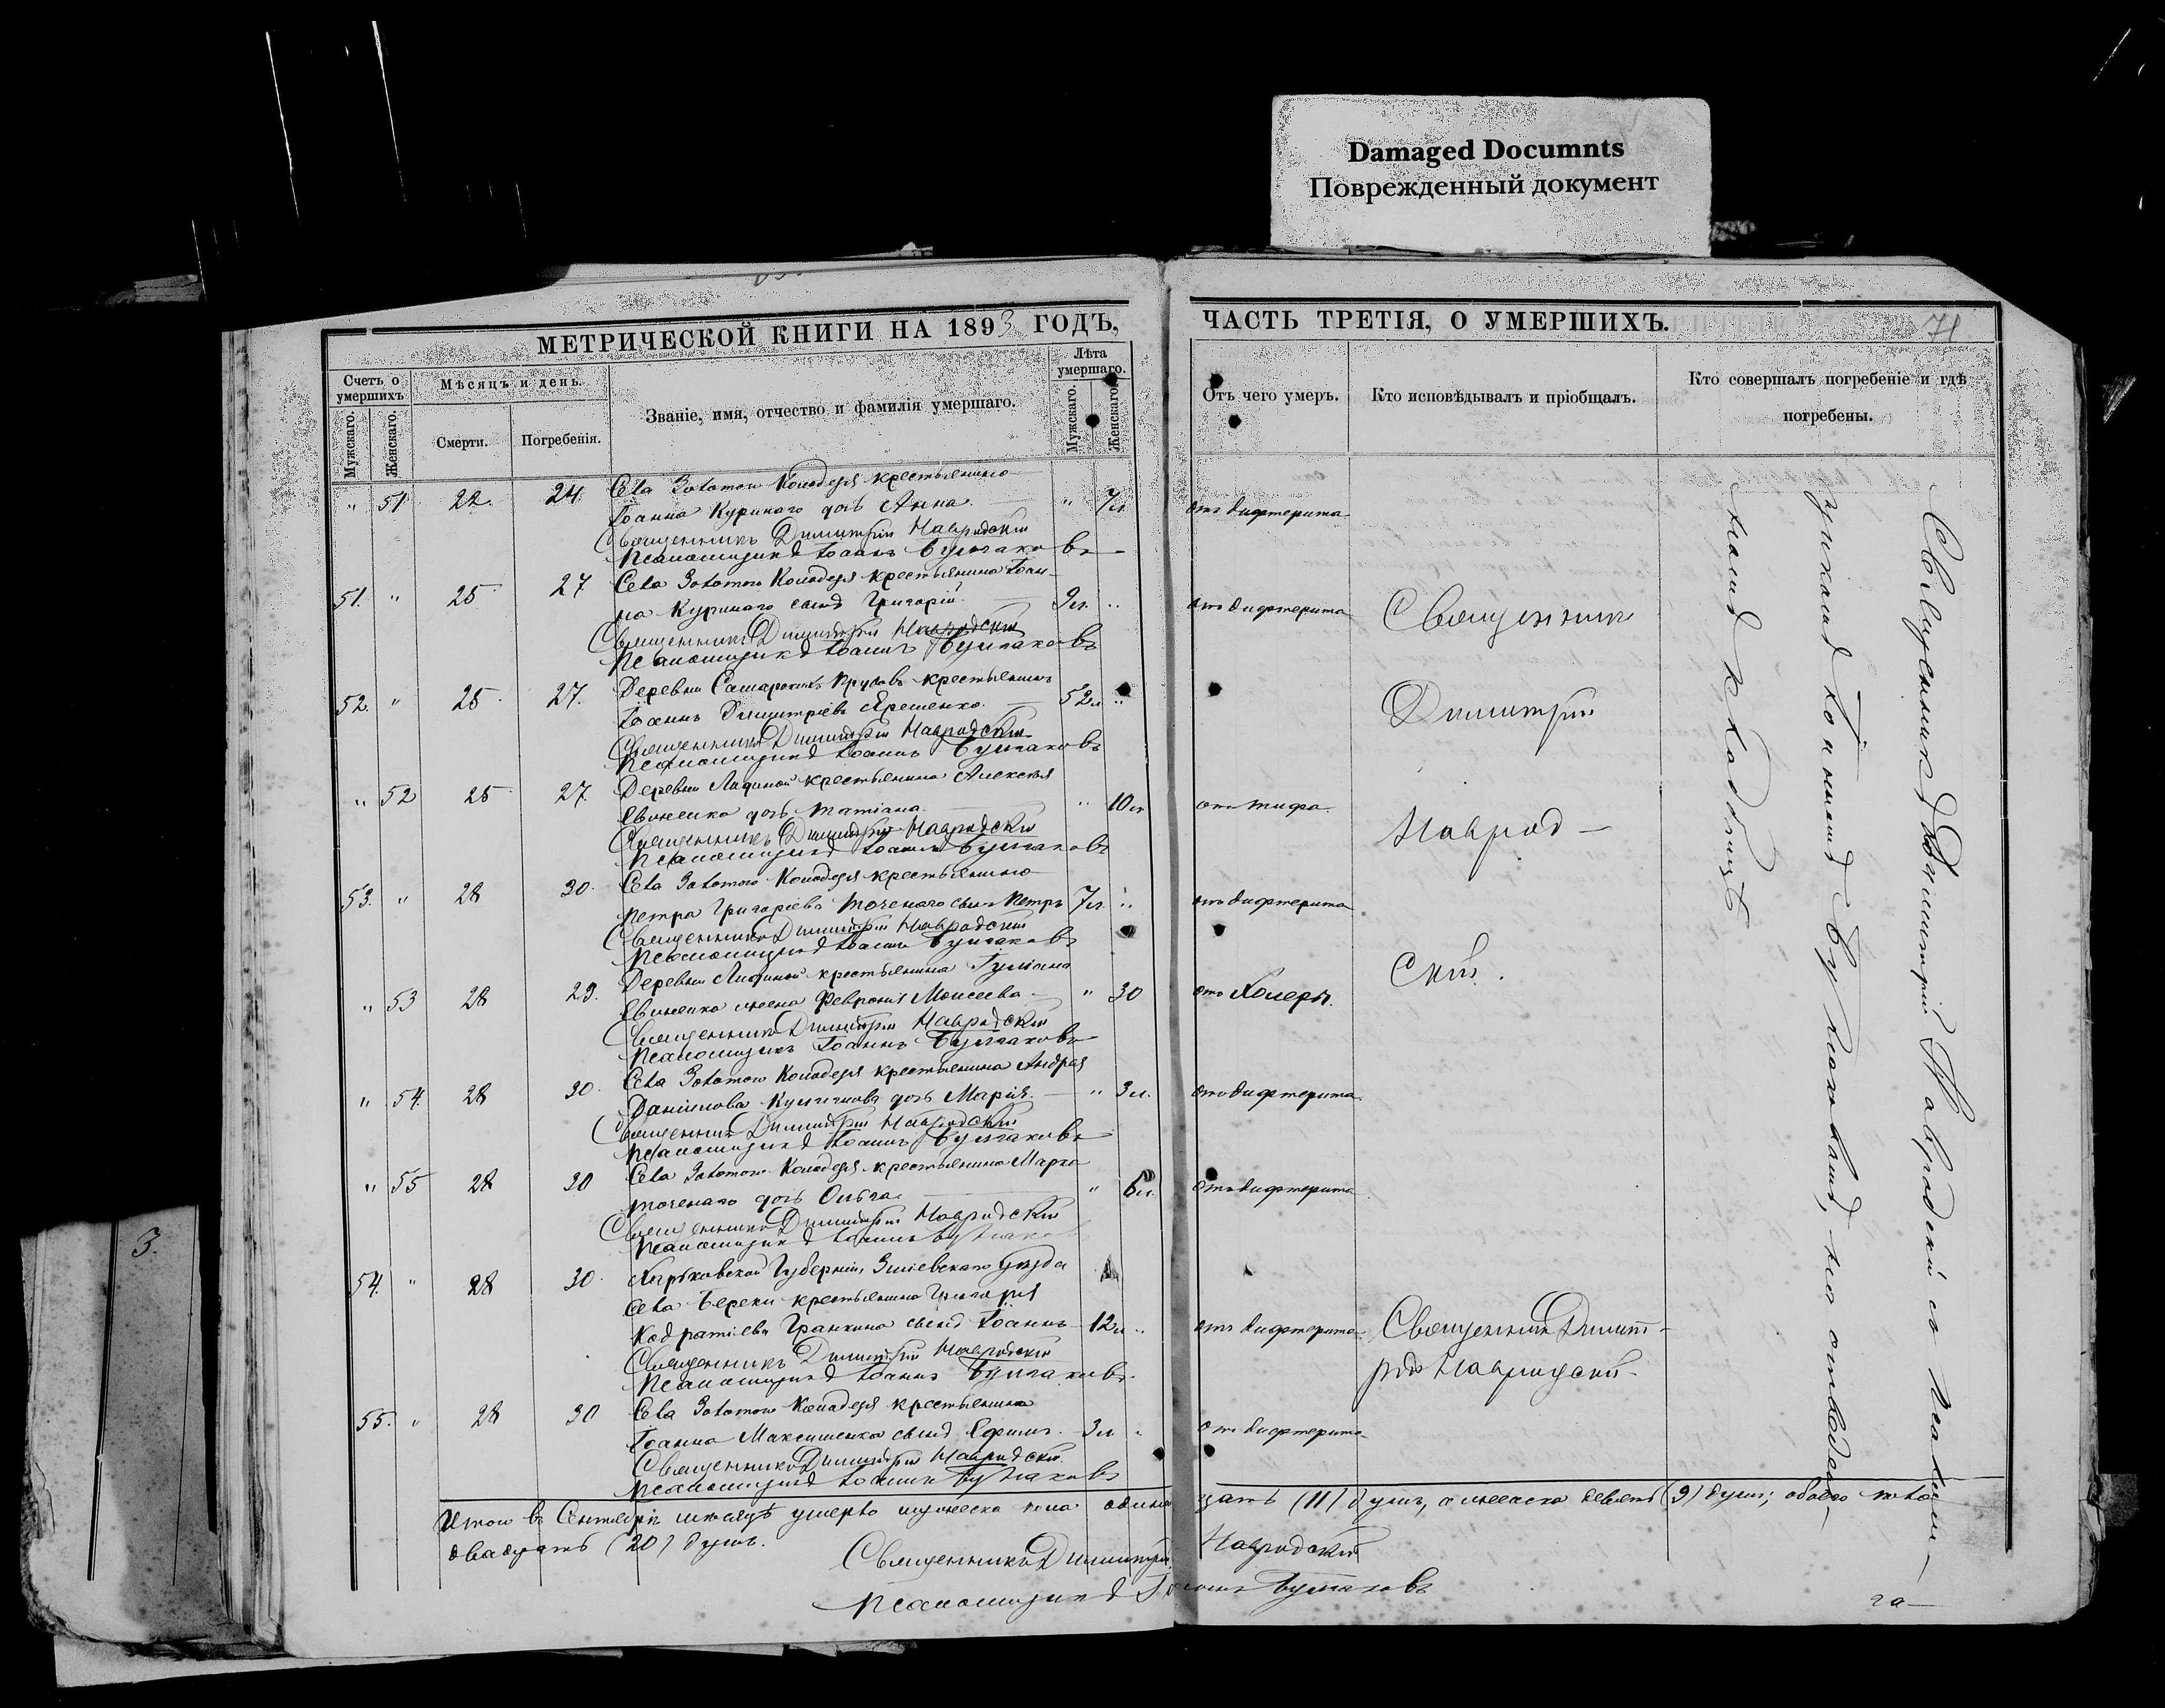 Damaged Documnts
Поврежденный документ
МЕТРИЧЕСКОЙ КНИГИ НА 1893 ГОДЪ,
ЧАСТЬ ТРЕТІЯ, О УМЕРШИХЪ.
71
Счетъ о умершихъ
Мужскаго.
Женскаго.
Мѣсяцъ и день.
Смерти.
Погребенія.
Званіе, имя, отчество и фамилія умершаго.
Лѣта умершаго.
Мужскаго.
Женскаго.
Отъ чего умеръ.
Кто исповѣдывалъ и пріобщалъ.
Кто совершалъ погребеніе и гдѣ погребены.
" 51 22. 24 Села Золотого Колодезя крестьянина
Іоанна Куринаго дочь Анна " 7 л. отъ дифтерита
Священникъ Димитрій Навродскій
Псаломщикъ Іоаннъ Булгаковъ
51. " 25 27 Села Золотого Колодезя крестьянина Іоан-
на Куринаго сынъ Григорій 9 л. " отъ дифтерита
Священникъ Димитрій Навродскій
Псаломщикъ Іоаннъ Булгаковъ
52. " 25 27. Деревни Самарскихъ Прудовъ крестьянинъ
Іоаннъ Димитріевъ Яременко 52 л "
Священникъ Димитрій Навродскій
Псаломщикъ Іоаннъ Булгаковъ
" 52 25 27. Деревни крестьянина Алексѣя
дочь Татіана " 10 л отъ тифа
Священникъ Димитрій Навродскій
Псаломщикъ Іоаннъ Булгаковъ
53. " 28 30. Села Золотого Колодезя крестьянина
Петра Григоріева сынъ Петръ 7 л. " отъ дифтерита
Священникъ Димитрій Навродскій
Псаломщикъ Іоаннъ Булгаковъ
" 53 28 29. Деревни крестьянина
жена Февронія Моисеева " 30 отъ холеры.
Священникъ Димитрій Навродскій
Псаломщикъ Іоаннъ Булгаковъ
" 54. 28 30. Села Золотого Колодезя крестьянина Андрея
Даніилова дочь Марія. " 3 л. отъ дифтерита
Священникъ Димитрій Навродскій
Псаломщикъ Іоаннъ Булгаковъ
" 55 28 30 Села Золотого Колодезя крестьянина Марка
дочь Ольга " 6 л. отъ дифтерита
Священникъ Димитрій Навродскій
Псаломщикъ Іоаннъ Булгаковъ
54. " 28 30. Харьковской Губерніи Зміевскаго уѣзда
села Береки крестьянина Григорія
Кодратіева Гранкина сынъ Іоаннъ 12 л " отъ дифтерита
Священникъ Димитрій Навродскій
Псаломщикъ Іоаннъ Булгаковъ
55. " 28 30 Села Золотого Колодезя крестьянина
Іоанна Максименка сынъ Ефимъ 3 л " отъ дифтерита
Священникъ Димитрій Навродскій
Псаломщикъ Іоаннъ Булгаковъ
Священникъ
Димитрій
Наврод-
скій.
Священникъ Димит-
рій Навродскій
Священникъ Димитрій Навродскій съ псаломщикомъ
Іоанномъ Булгаковымъ, на
кладбищѣ
Итого въ Сентябрѣ мѣсяцѣ умерло мужеска пола одинадцать (11) душъ, а женска девять (9) душъ; обоего пола
двадцать (20) душъ.
Священникъ Димитрій Навродскій
Псаломщикъ Іоаннъ Булгаковъ
3.